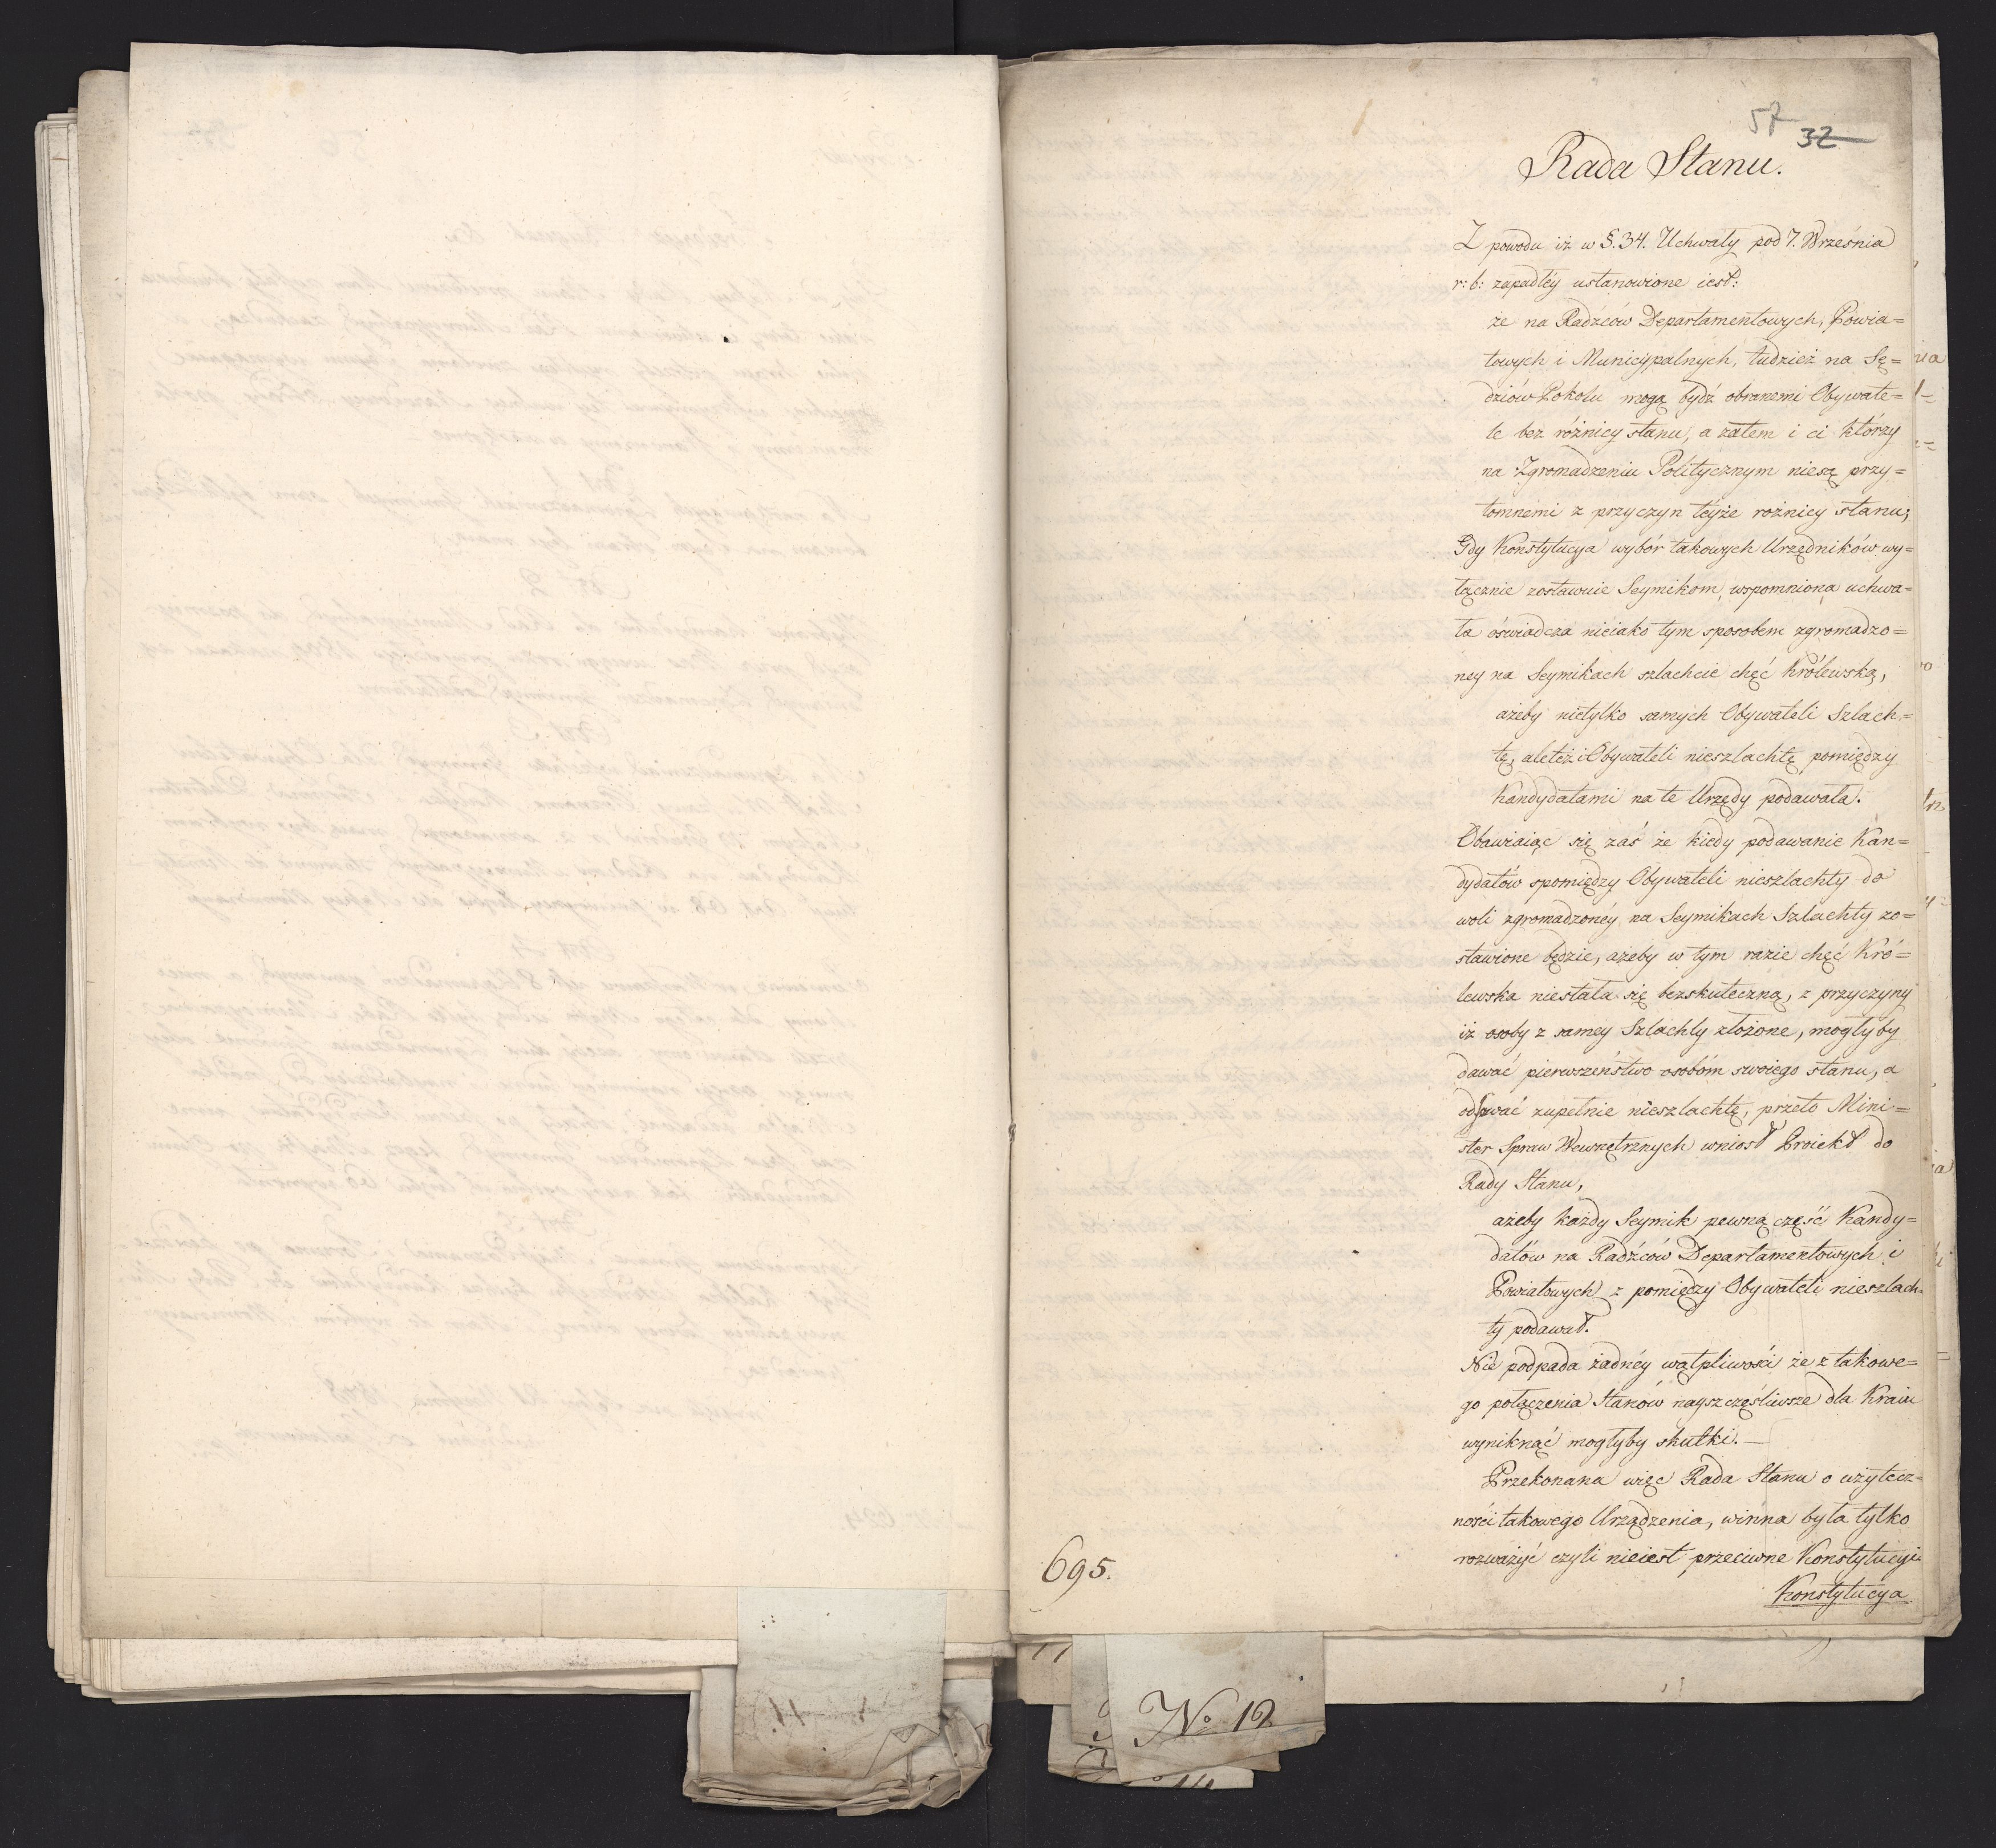 57
32
Rada Stanu.
Z powodu iż w §. 34. Uchwały pod 7. Września
r: b: zapadłéy ustanowione iest:
że na Radzców Departamentowych, Powia=
towych i Municypalnych, tudzież na Sę=
dziów Pokoiu mogą bydź obranemi Obywate=
le bez różnicy stanu, a zatem i ci którzy
na Zgromadzeniu Politycznym niesą przy=
tomnemi z przyczyn téyże rożnicy stanu;
Gdy Konstytucya wybór takowych Urzędników wy=
łącznie zostawuie Seymikom, wspomniona uchwa=
ła oświadcza nieiako tym sposobem zgromadzo=
ney na Seymikach szlachcie chęć Królewską,
ażeby nietylko samych Obywateli Szlach=
tę, aleteż i Obywateli nieszlachtę pomiędzy
Kandydatami na te Urzędy podawała.
Obawiaiąc się zaś że kiedy podawanie Kan=
dydatów spomiędzy Obywateli nieszlachty do
woli zgromadzonéy na Seymikach Szlachty zo=
stawione będzie, ażeby w tym razie chęć Kró=
lewska niestała się bezskuteczną, z przyczyny
iż osoby z samey Szlachty złożone, mogłyby
dawać pierwszeństwo osobóm swoiego stanu, a
odsuwać zupełnie nieszlachtę, przeto Mini=
ster Spraw Wewnętrznych wniosł Proiekt do
Rady Stanu,
ażeby każdy Seymik pewną część Kandy=
datów na Radźców Departamentowych i
Powiatowych z pomiędzy Obywateli nieszlach=
ty podawał.
Nie podpada żadnéy wątpliwości że z takowe=
go połączenia Stanów nayszczęśliwsze dla Kraiu
wyniknąć mogłyby skutki. —
Przekonana więc Rada Stanu o użytecz=
ności takowego Urządzenia, winna była tylko
rozważyć czyli nieiest przeciwne Konstytucyi.
Konstytucya
695.
No 12